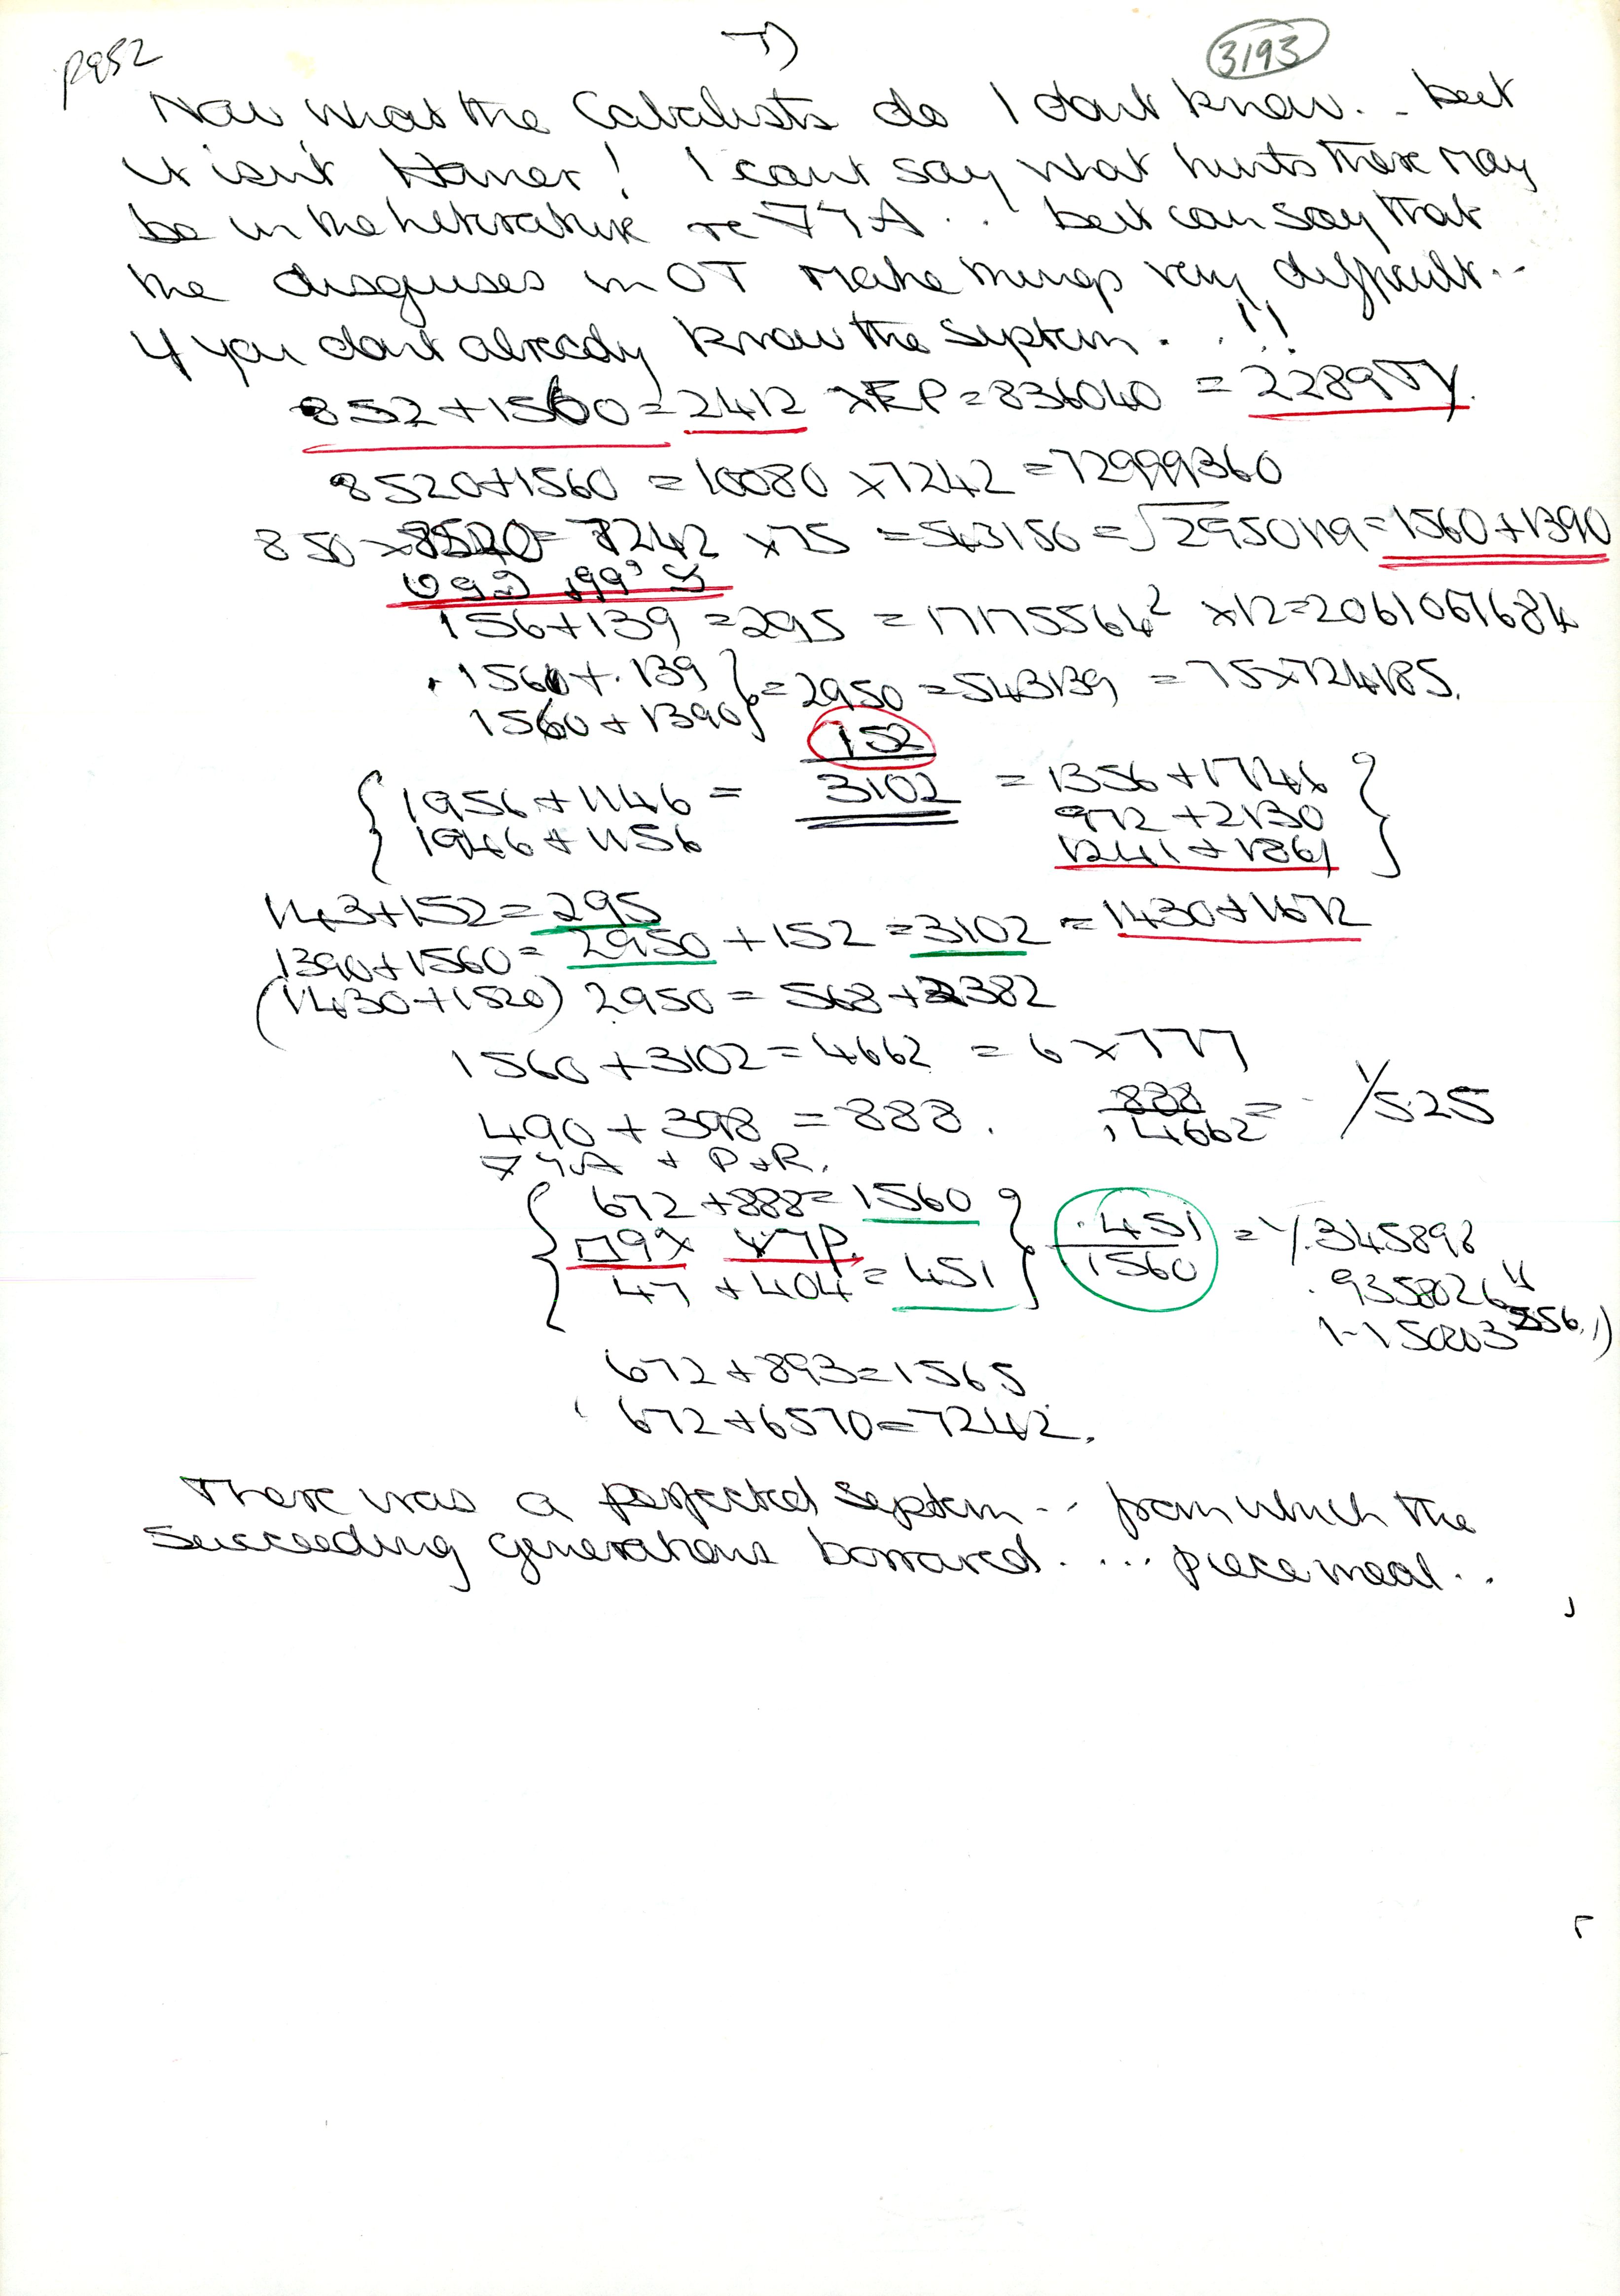 P952
7)
3193
Now what the Cabalists do I dont know.. but
it isn't Homer! I cant say what hints there may
be in the literature re .. but can say that
the disguises in OT make things very difficult..
if you dont already know the system. ..!!
852+1560=2412 xEP=836040 = 2289
8520+1560 =10080 x7242 =72999360
850 x8520= 7242 x75 =543156=√295 =1560+1390
156+139 =295 =17175564² x12=2061067684
.1560+.139
1560+1390 } =2950 =543139 =75x724185.
152
{ 1956+1146 = 3102 = 1356+1746 }
1946+1156 972+2130
1241+1861
143+152=295
1390+1560= 2950+152 =3102 =1430+1672
(1430+1520) 2950= 568+2382
1560+3102=4662 =6x777
490+398 =888. 888/.4662 = 1/525
+ P+R.
{ 672+888=1560 } .451/1560 = 1/.345898
47 +404=451
.9358026
672+893=1565
672+6570=7242.
There was a perfected system .. from which the
succeeding generations borrowed. ... piecemeal..